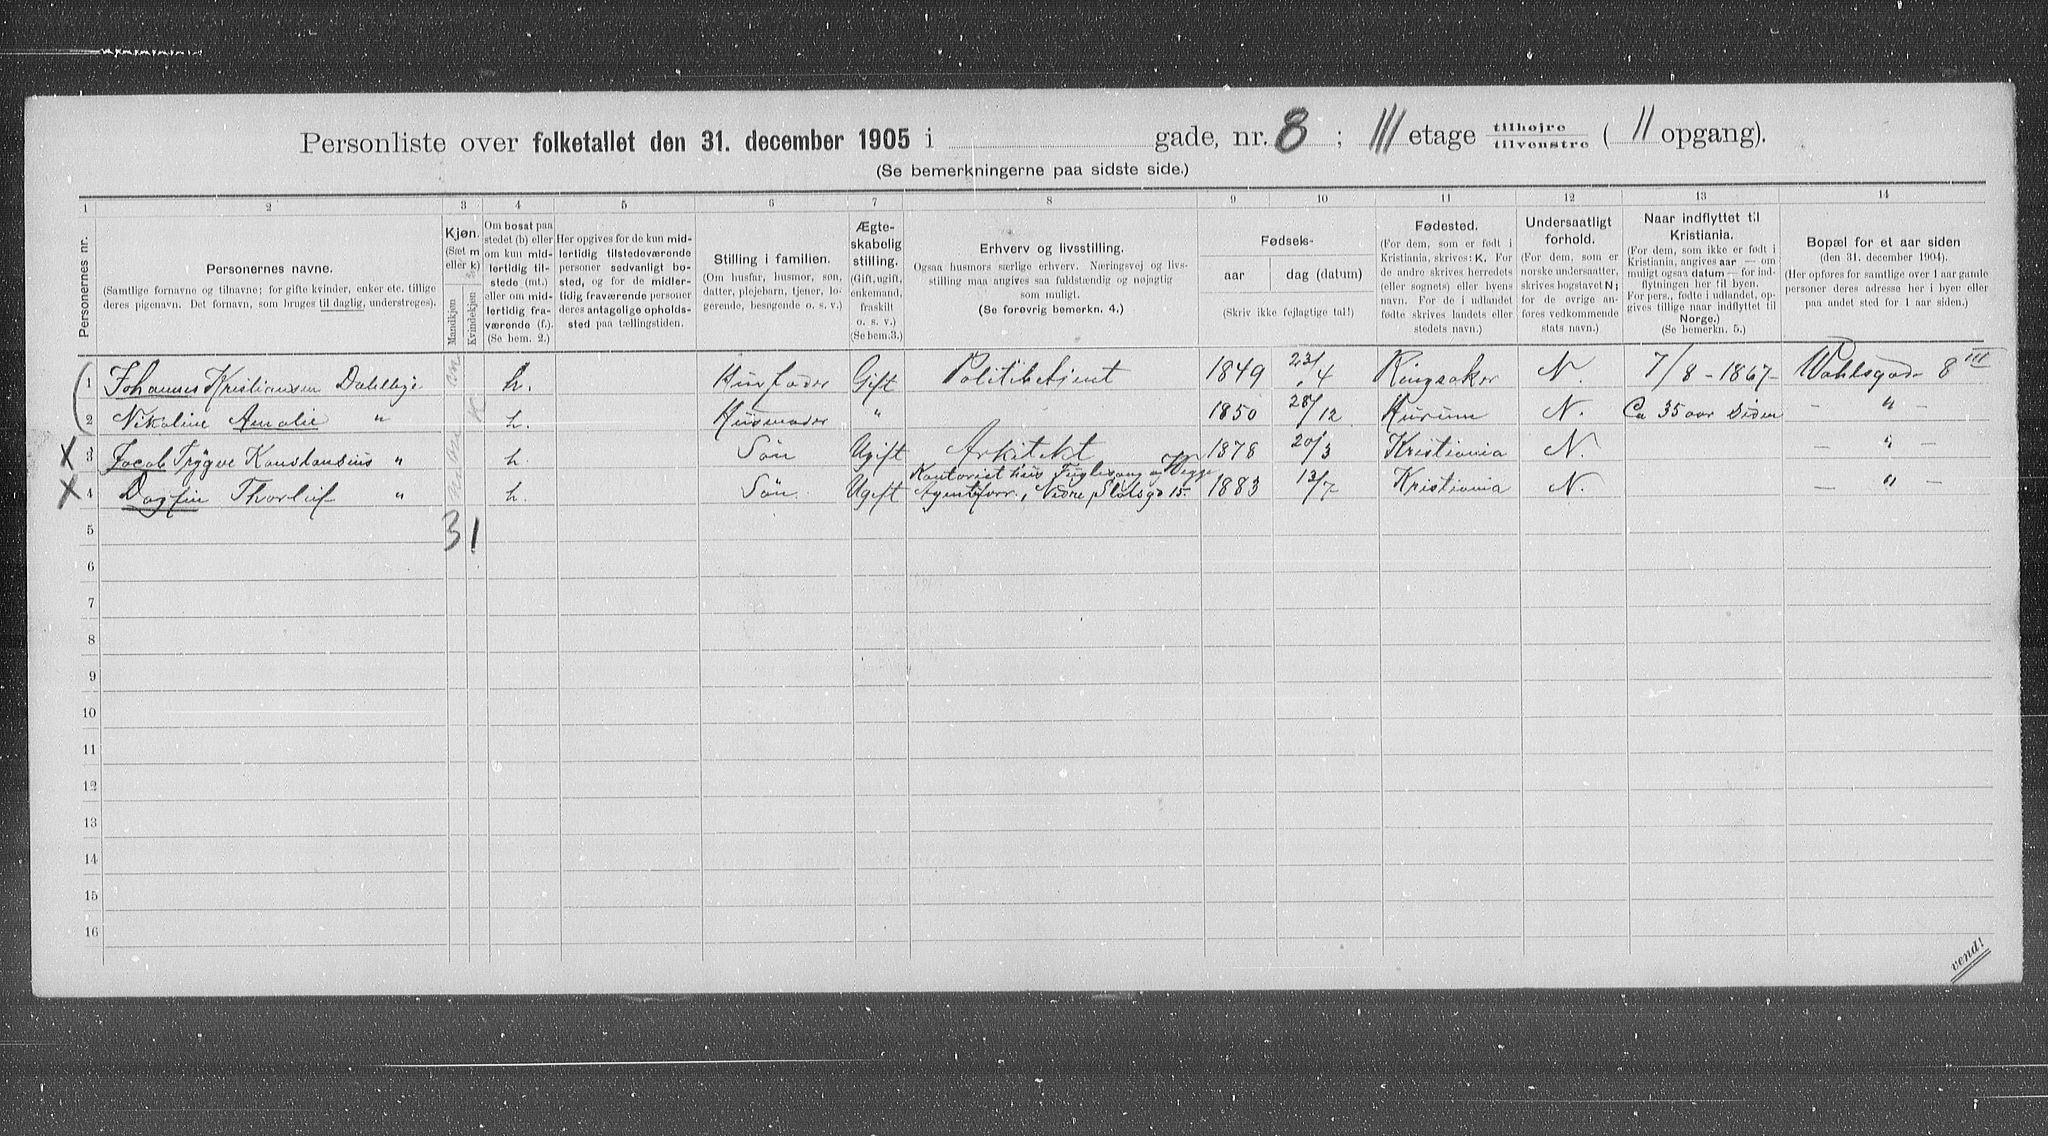 Personliste over folketallet den 31. december 1905 i gade, nr. 8 ; III etage tilhøjre tilvenstre ( II opgang).
(Se bemerkningerne paa sidste side.)
1 2 3 4 5 6 7 8 9 10 11 12 13 14
Personernes nr.
Personernes navne.
(Samtlige fornavne og tilnavne; for gifte kvinder, enker etc. tillige
deres pigenavn. Det fornavn, som bruges til daglig, understreges).
Kjøn.
(Sæt m
eller k)
Mandkjøn
Kvindekjøn
Om bosat paa
stedet (b) eller
om kun mid-
lertidig til-
stede (mt.)
eller om mid-
lertidig fra-
værende (f.).
(Se bem. 2.)
Her opgives for de kun mid-
lertidig tilstedeværende
personer sedvanligt bo-
sted, og for de midler-
tidig fraværende personer
deres antagelige opholds-
sted paa tællingstiden.
Stilling i familien.
(Om husfar, husmor, søn,
datter, plejebarn, tjener, lo-
gerende, besøgende o. s. v.)
Ægte-
skabelig
stilling.
(Gift, ugift,
enkemand,
fraskilt
o. s. v.)
(Se bem.3.)
Erhverv og livsstilling.
Ogsaa husmors særlige erhverv. Næringsvej og livs-
stilling maa angives saa fuldstændig og nøjagtig
som muligt.
(Se forøvrig bemerkn. 4.)
Fødsels-
aar dag (datum)
(Skriv ikke fejlagtige tal!)
Fødested.
(For dem, som er født i
Kristiania, skrives: K. For
de andre skrives herredets
(eller sognets) eller byens
navn. For de i udlandet
fødte skrives landets eller
stedets navn.)
Undersaatligt
forhold.
(For dem, som er
norske undersaatter,
skrives bogstavet N;
for de øvrige an-
føres vedkommende
stats navn.)
Naar indflyttet til
Kristiania.
(For dem, som ikke er født i
Kristiania, angives aar — om
muligt ogsaa datum — for ind-
flytningen her til byen.
For pers., fødte i udlandet, op-
gives tillige naar indflyttet til
Norge.)
(Se bemerkn. 5.)
Bopæl for et aar siden
(den 31. december 1904).
(Her opføres for samtlige over 1 aar gamle
personer deres adresse her i byen eller
paa andet sted for 1 aar siden.)
1 Johannes Kristiansen m b. Husfader Gift Politibetjent 1849 23/4 Ringsaker N. 7/8 - 1867 Wahlsgade 8 III
2 Nikoline Amalie " k b. Husmoder " 1850 28/12 Hurum N. Ca 35 aar siden — " —
X 3 Jacob Trygve Konstansius " m b. Søn Ugift Arkitekt 1878 20/3 Kristiania N. — " —
X 4 Dagfin Thorleif " m b. Søn Ugift Kontorist hos Fuglesang og Wegge
Agentforr., Nedre Slotsgd 15 1883 13/7 Kristiania N. — " —
5 3 1
6
7
8
9
10
11
12
13
14
15
16
vend!